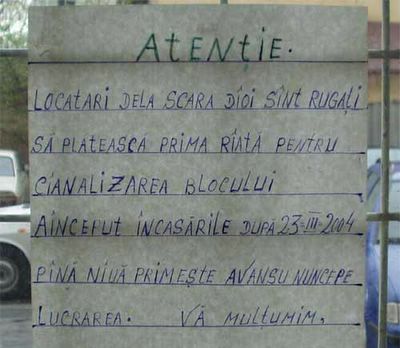 ATENȚIE.
LOCATARI DELA SCARA DÎOI SÎNT RUGAȚI
SĂ PLATEASCĂ PRIMA RÎATĂ PENTRU
CIANALIZAREA BLOCULUI
AINCEPUT ÎNCASĂRILE DUPĂ 23-III-2004
PÎNĂ NIUĂ PRIMEȘTE AVANSU NUNCEPE
LUCRAREA. VĂ MULȚUMIM.